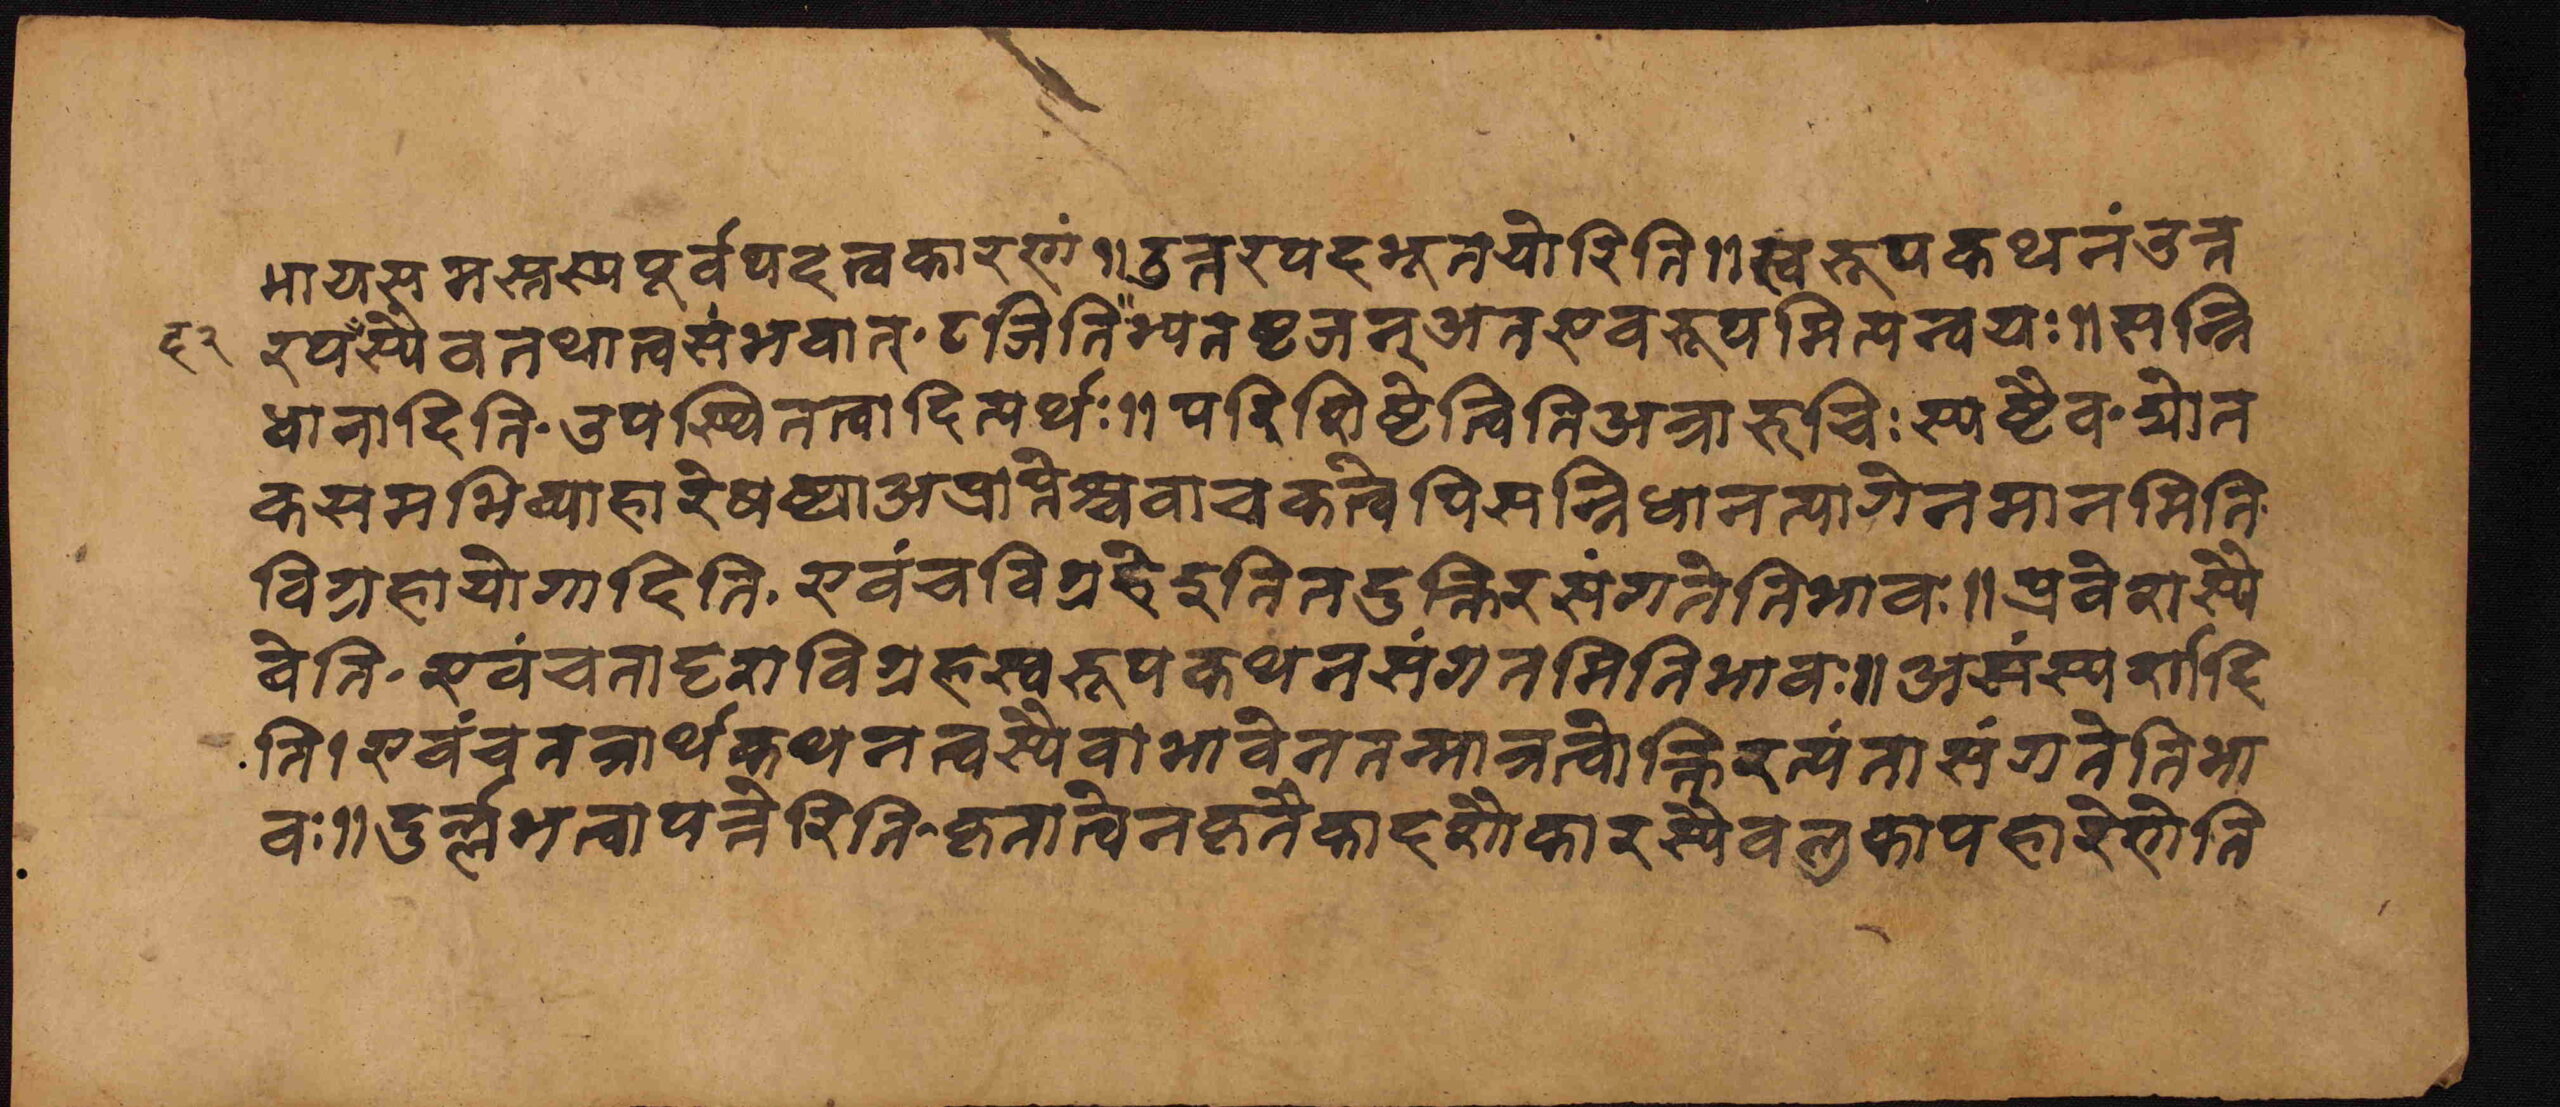 मायसमस्तस्यपूर्वपदत्वकारणं॥उत्तरपदभूतयोरिति॥स्वरूपकथनंउत्त
६२ रपदस्यैवतथात्वसंभवात्॰टजिति॥भ्यतष्टजन्अतएवरूपमित्यन्वयः॥सन्नि
धानादिति॰उपस्थितत्वादित्यर्थः॥परिशिष्टेत्वितिअत्रारुचिः स्पष्टैव॰द्योत
कसमभिव्याहारेषष्ट्याअप्राप्तेस्त्ववाचकत्वेपिसन्निधानत्यागेनमानमिति॰
विग्रहायोगादिति॰एवंचविग्रहेइतितदुक्तिरसंगतेतिभावः॥प्रवेशस्यै
वेति॰एवंचतादृशविग्रहस्वरूपकथनसंगतमितिभावः॥असंस्पर्शादि
ति।एवंचतत्रार्थकथनत्वस्यैवाभावेनतन्मात्रत्वोक्तिरत्यंतासंगतेतिभा
वः॥दुर्ल्लभत्वापत्तेरिति॰कृतात्वेनकृतैकादशौकारस्यैवलुकापहारेणेति